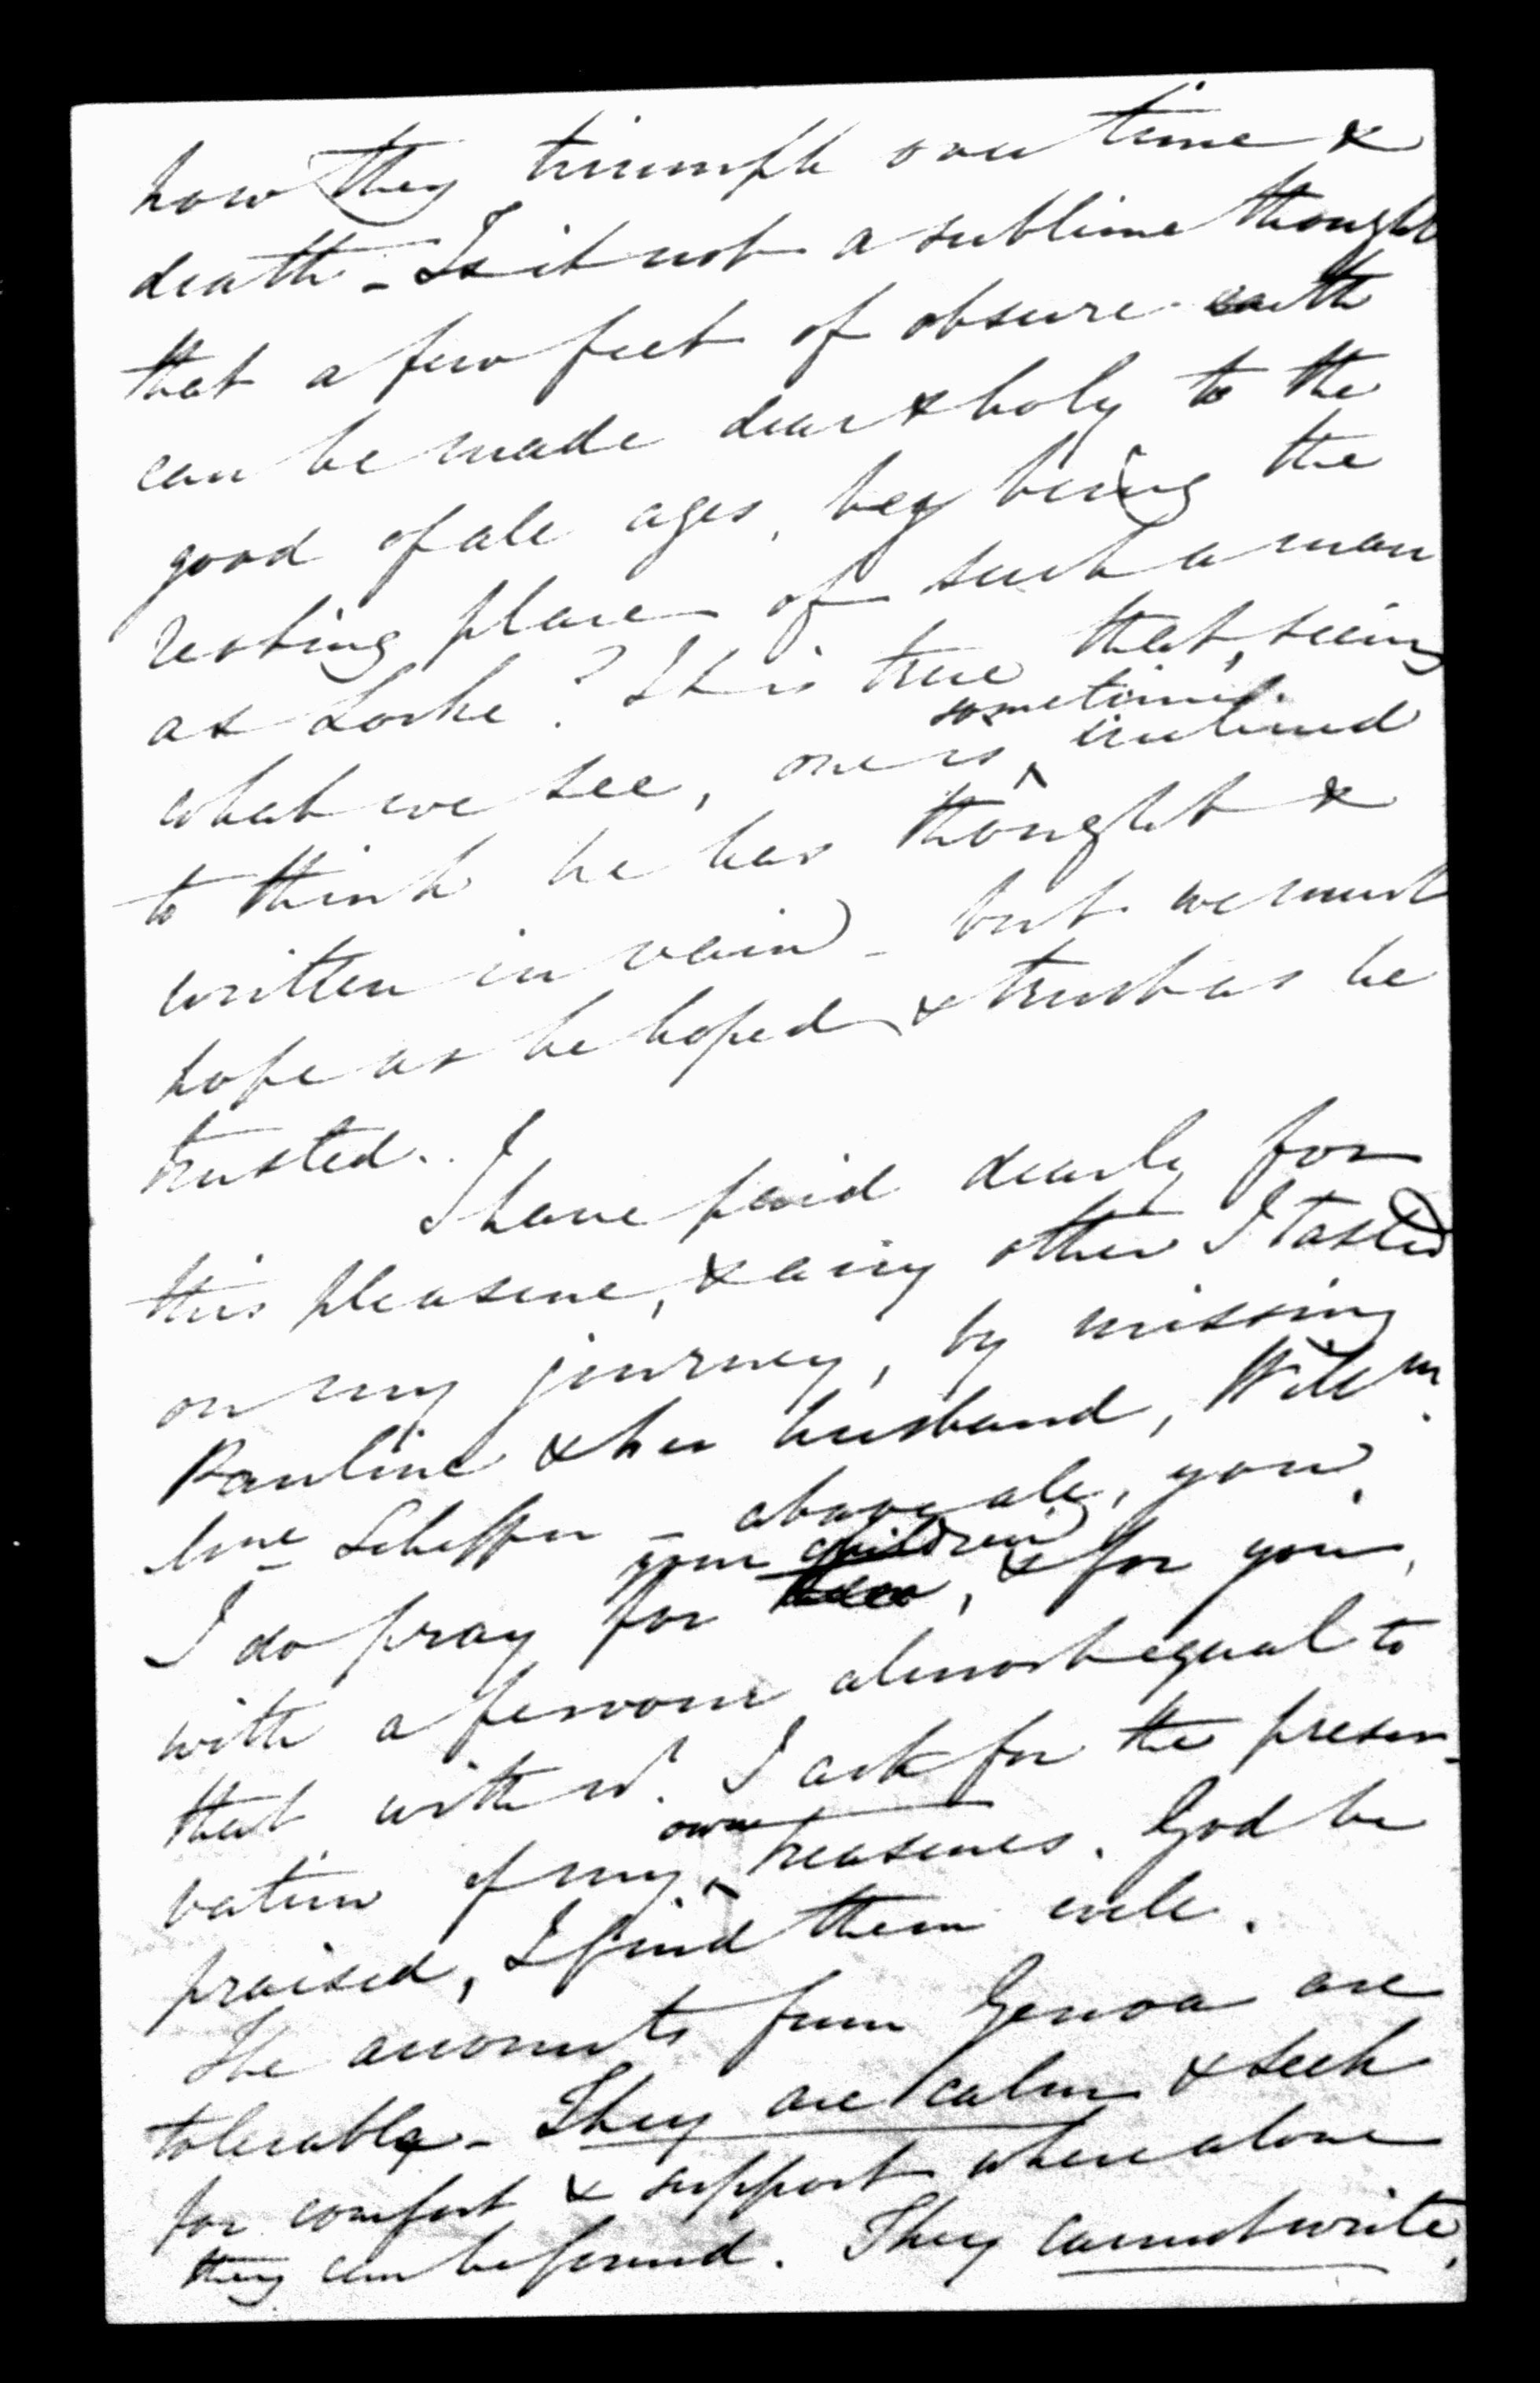 how they triumph over time &
death - Is it not a sublime thought
that a few feet of obscure earth
can be made dear & holy to the
good of all ages, by being the
resting place of such a man
as Locke? It is true that, seeing
what we see, one is sometimes inclined
to think he has thought &
written in vain - but we must
hope as he hoped & trust as he
trusted.
I have paid dearly for
this pleasure, & any other I tasted
on my journey, by missing
Pauline & her husband, Will^m.
Mme Scheffer - above all, you.
I do pray for your children, & for you,
with a fervour almost equal to
that with wh. I ask for the preser-
vation of my own treasures. God be
praised, I find them well.
The accounts from Genoa are
tolerable - They are calm & seek
for comfort & support where alone
they can be found. They cannot write,